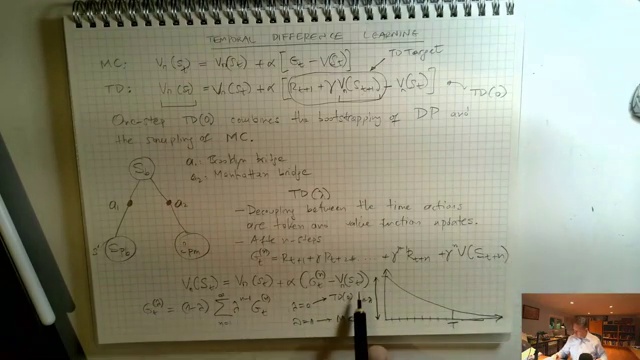 TEMPORAL DIFFERENCE LEARNING
TD Target
MC: Vπ(St) = Vπ(St) + α [Gt − V(St)]
TD: Vπ(St) = Vπ(St) + α [Rt+1 + γ Vπ(St+1) − Vπ(St)]
TD(0)
One-step TD(0) combines the bootstrapping of DP and
the sampling of MC.
a1: Brooklyn bridge
a2: Manhattan bridge
a1
a2
TD(λ)
- Decoupling between the time actions
are taken and value function updates.
- After n-steps
Gt(n) = Rt+1 + γ Rt+2 + γ^n V(St+n)
Vπ(St) = Vπ(St) + α (Gt(λ) − Vπ(St))
Gt(λ) = (1-λ) Σ λ^n-1 Gt(n)
T